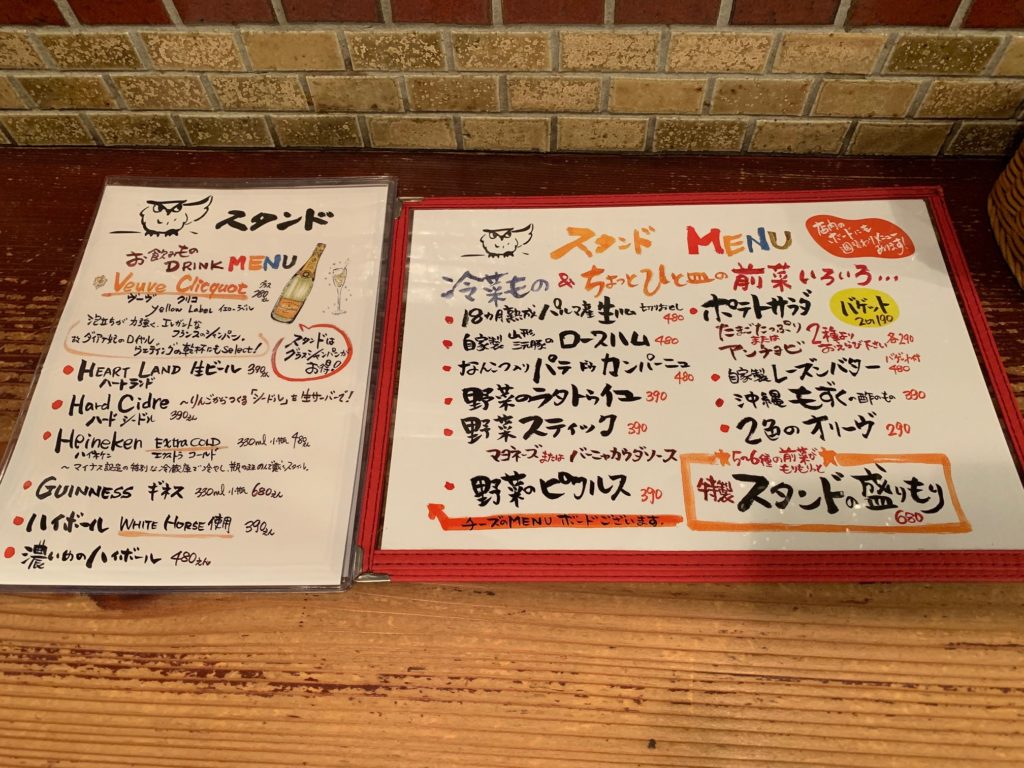 スタンド
お飲みもの
DRINK MENU
Veuve Clicquot
ヴーヴ クリコ
Yellow Label イエローラベル
泡立ちが力強く、エレガントな
フランスのシャンパン。
ウェディングの乾杯にもselect!
スタンドは
グラスシャンパンが
お得!
HEART LAND 生ビール 390えん
ハートランド
Hard Cidre ～りんごからつくる「シードル」を生サーバーで!
ハード シードル 390えん
Heineken EXtra COLD 330ml 小瓶 480えん
ハイネケン エクストラ コールド
GUINNESS ギネス 330ml 小瓶 680えん
ハイボール WHITE HORSE 使用 390えん
濃いめのハイボール 480えん
スタンド MENU
店内の
ボードにも
週替わりメニュー
あります!
冷菜もの & ちょっとひと皿の前菜いろいろ…
18ヵ月熟成 パルマ産生ハム 切りおとし 480
自家製 山形三元豚の ロースハム 480
なんこつ入り パテ ドゥ カンパーニュ 480
野菜のラタトゥイユ 390
野菜スティック 390
マヨネーズまたは バーニャカウダソース
野菜のピクルス 390
チーズのMENU ボードございます。
ポテトサラダ
たまごたっぷり
または
アンチョビ
2種より
お選び下さい 各290
バゲット
2コ 190
自家製 レーズンバター バゲット付 480
沖縄もずくの酢のもの 390
2色のオリーヴ 290
5～6種の前菜が
もりもりっと
特製 スタンドの盛りもり
680